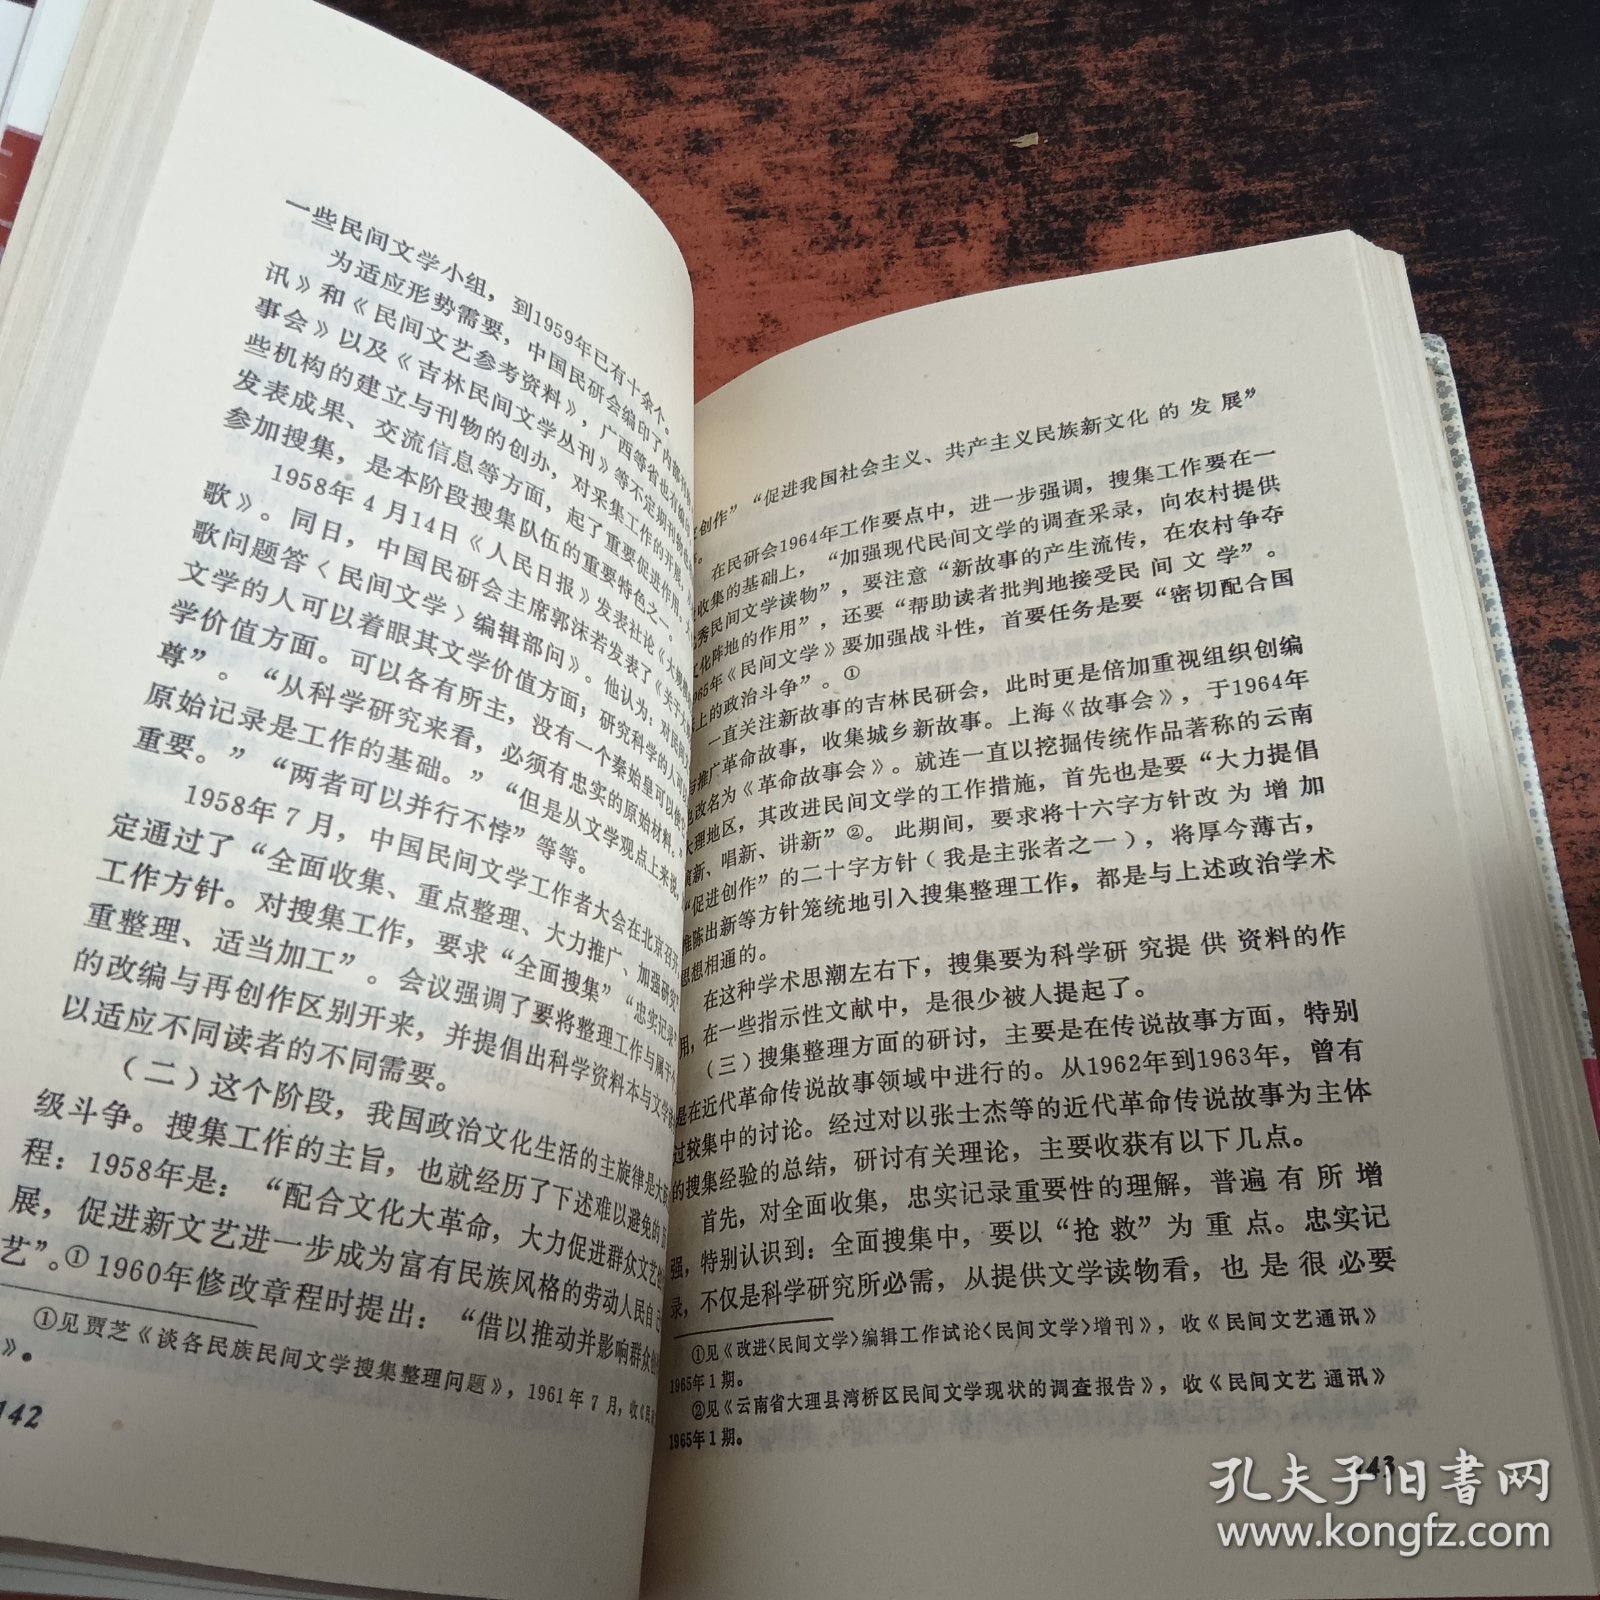 一些民间文学小组，到1959年已有十余个。
为适应形势需要，中国民研会编印了内部
讯》和《民间文艺参考资料》，广西等省也有
事会》以及《吉林民间文学丛刊》等不定期刊物
些机构的建立与刊物的创办，对采集工作的开展，
发表成果、交流信息等方面，起了重要促进作用。
参加搜集，是本阶段搜集队伍的重要特色之一。
1958年4月14日《人民日报》发表社论《大规模
歌》。同日，中国民研会主席郭沫若发表了《关于
歌问题答〈民间文学〉编辑部问》。他认为：对民间
文学的人可以着眼其文学价值方面；研究科学的人可
学价值方面。可以各有所主，没有一个秦始皇可以使它
尊”。“从科学研究来看，必须有忠实的原始材料。”
原始记录是工作的基础。”“但是从文学观点上来说，
重要。”“两者可以并行不悖”等等。
1958年7月，中国民间文学工作者大会在北京召开
定通过了“全面收集、重点整理、大力推广、加强研究”
工作方针。对搜集工作，要求“全面搜集”“忠实记录
重整理、适当加工”。会议强调了要将整理工作与属于
的改编与再创作区别开来，并提倡出科学资料本与文学
以适应不同读者的不同需要。
（二）这个阶段，我国政治文化生活的主旋律是大
级斗争。搜集工作的主旨，也就经历了下述难以避免的
程：1958年是：“配合文化大革命，大力促进群众文艺
展，促进新文艺进一步成为富有民族风格的劳动人民自己
艺”。①1960年修改章程时提出：“借以推动并影响群众
①见贾芝《谈各民族民间文学搜集整理问题》，1961年7月，收《民
》。
142
创作”“促进我国社会主义、共产主义民族新文化的发展”
。
在民研会1964年工作要点中，进一步强调，搜集工作要在一
收集的基础上，“加强现代民间文学的调查采录，向农村提供
秀民间文学读物”，要注意“新故事的产生流传，在农村争夺
文化阵地的作用”，还要“帮助读者批判地接受民间文学”。
965年《民间文学》要加强战斗性，首要任务是要“密切配合国
上的政治斗争”。①
一直关注新故事的吉林民研会，此时更是倍加重视组织创编
与推广革命故事，收集城乡新故事。上海《故事会》，于1964年
也改名为《革命故事会》。就连一直以挖掘传统作品著称的云南
大理地区，其改进民间文学的工作措施，首先也是要“大力提倡
演新、唱新、讲新”②。此期间，要求将十六字方针改为增加
“促进创作”的二十字方针（我是主张者之一），将厚今薄古，
推陈出新等方针笼统地引入搜集整理工作，都是与上述政治学术
思想相通的。
在这种学术思潮左右下，搜集要为科学研究提供资料的作
用，在一些指示性文献中，是很少被人提起了。
（三）搜集整理方面的研讨，主要是在传说故事方面，特别
是在近代革命传说故事领域中进行的。从1962年到1963年，曾有
过较集中的讨论。经过对以张士杰等的近代革命传说故事为主体
的搜集经验的总结，研讨有关理论，主要收获有以下几点。
首先，对全面收集，忠实记录重要性的理解，普遍有所增
强，特别认识到：全面搜集中，要以“抢救”为重点。忠实记
录，不仅是科学研究所必需，从提供文学读物看，也是很必要
①见《改进〈民间文学〉编辑工作试论〈民间文学〉增刊》，收《民间文艺通讯》
1965年1期。
②见《云南省大理县湾桥区民间文学现状的调查报告》，收《民间文艺通讯》
1965年1期。
143
孔夫子旧书网
www.kongfz.com